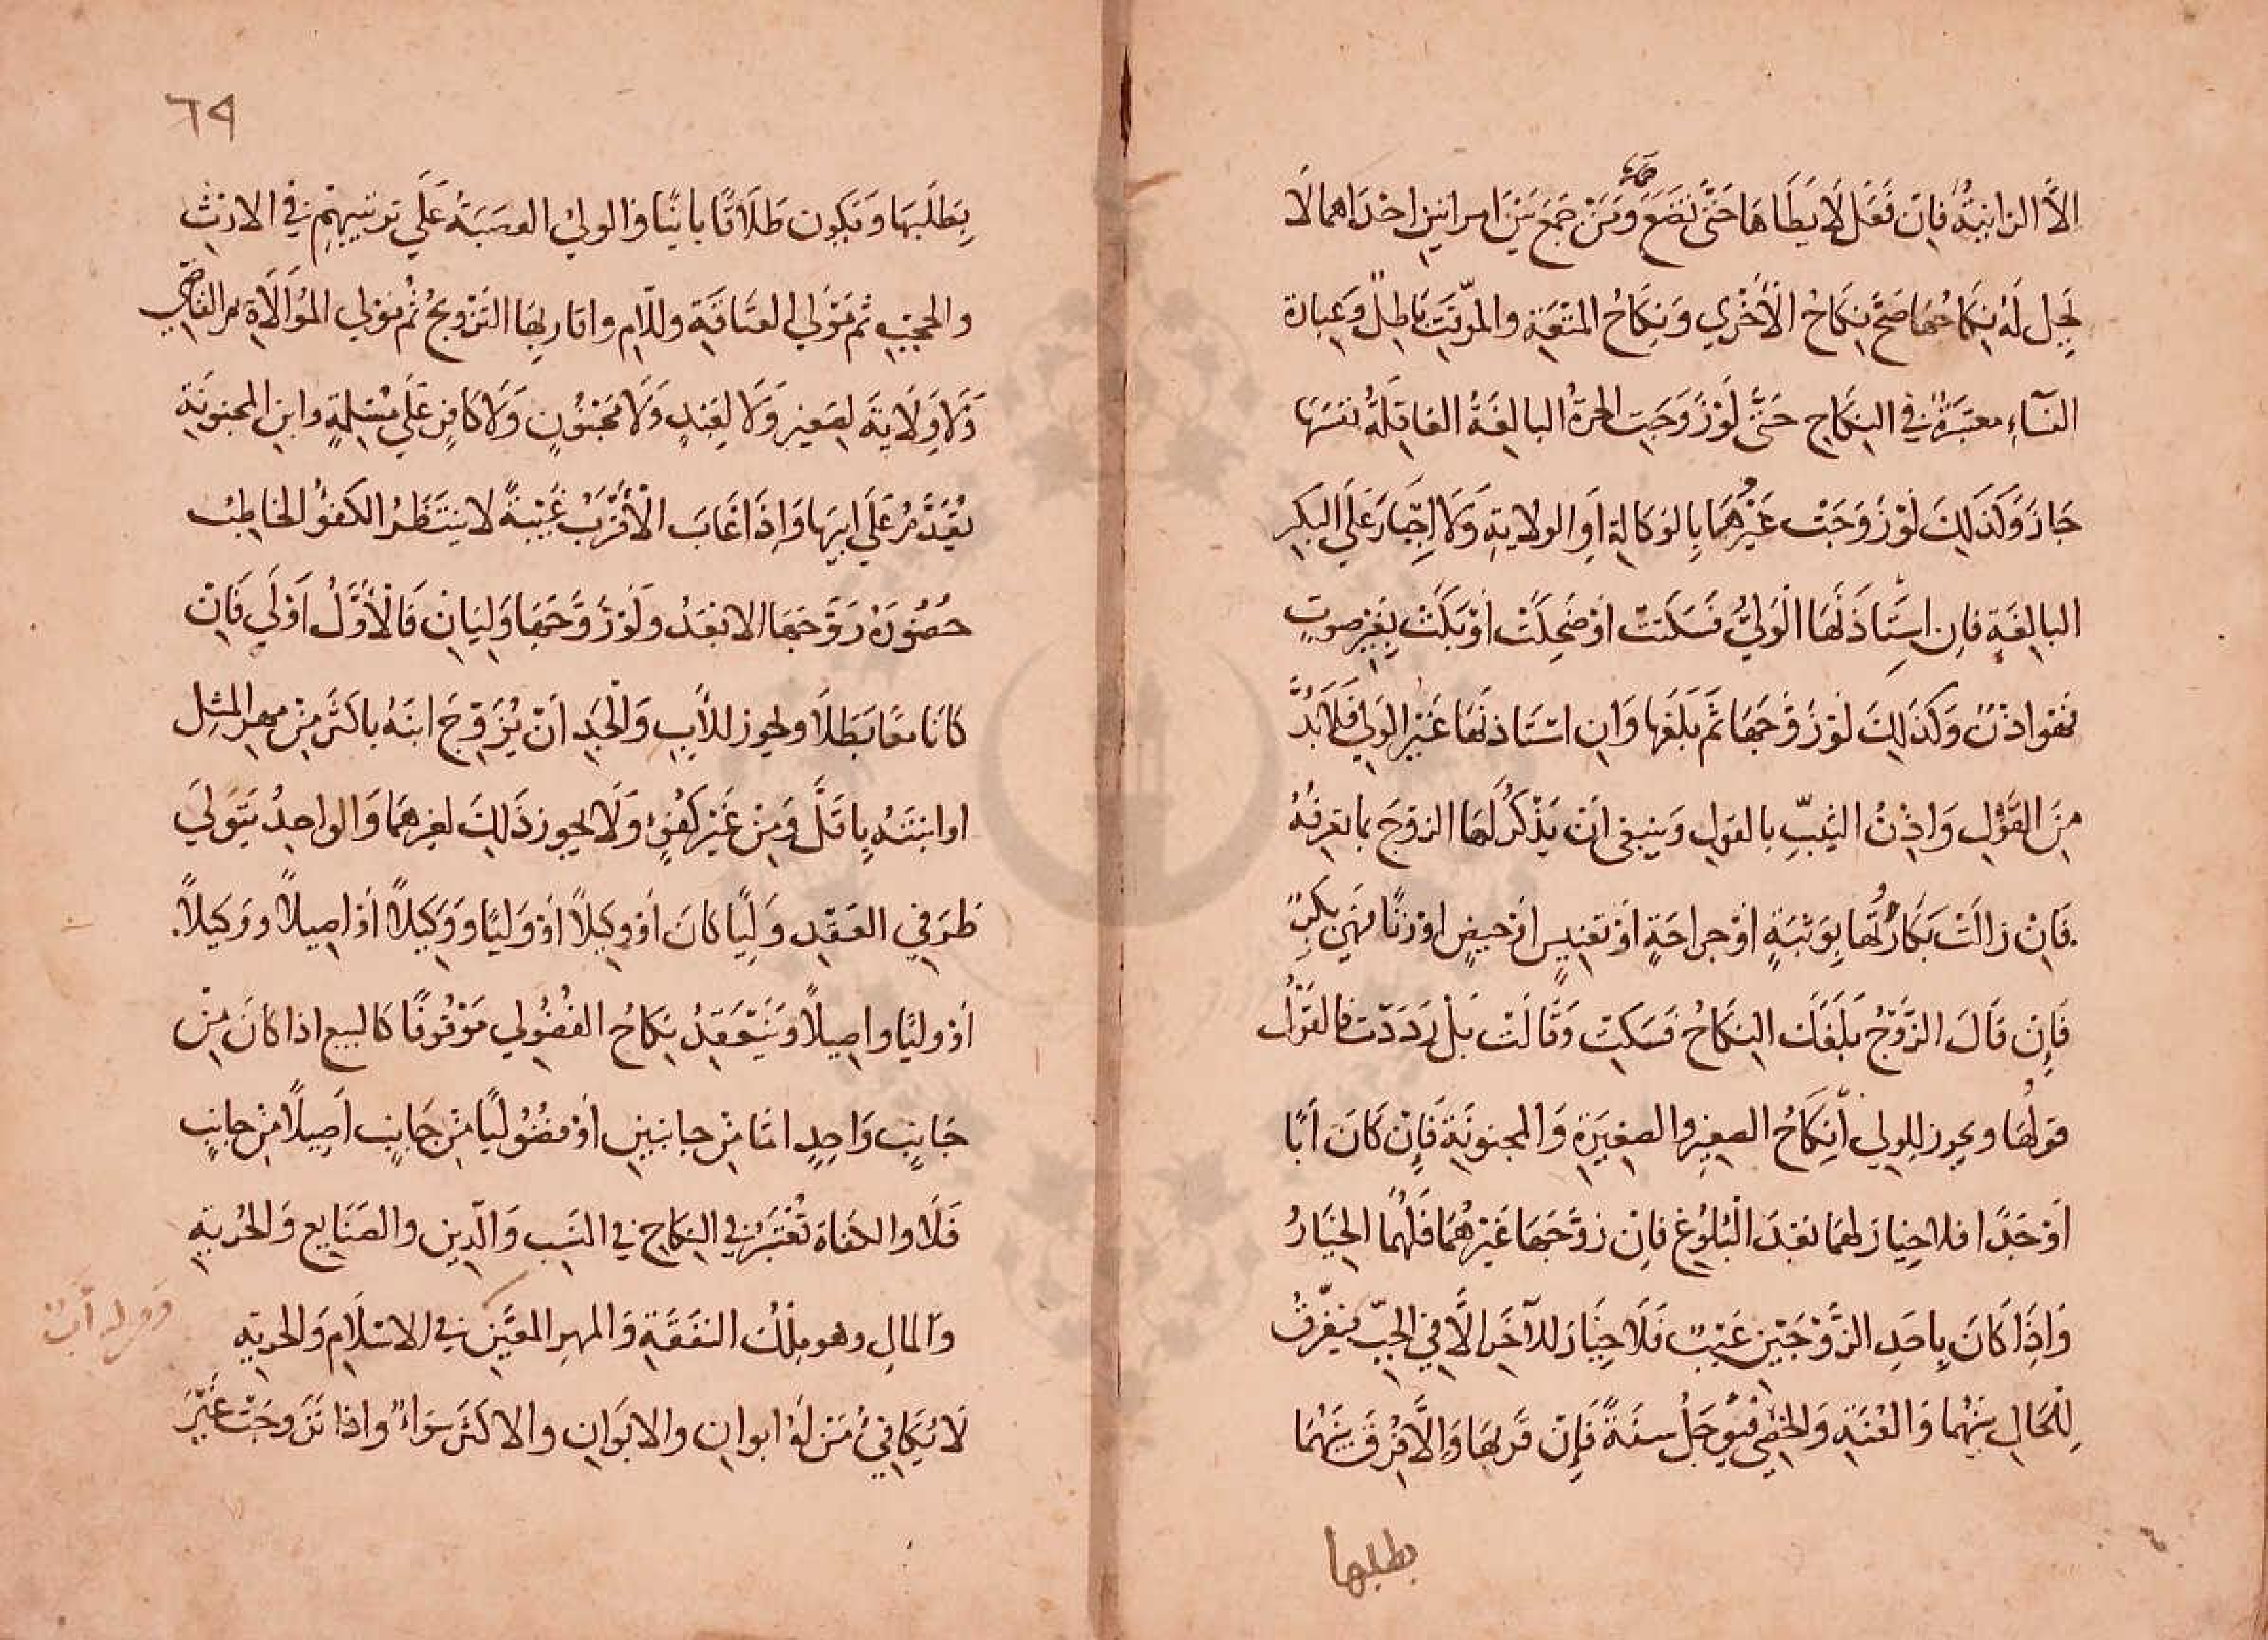 الَّا الزانِيَةُ فَاِنْ فَعَلَ لَا يَطَاهَا حَتَّى تَضَعَ حملها وَمَنْ جَمَعَ بَيْنَ امراتين احْدَاهما لَا
يَحِل لَهُ نِكَاحُهَا صَحَّ نِكَاحُ الْأُخْرَي وَنِكَاحُ المُتْعَةِ والمُوَقَّتِ بَاطِلٌ وَعِبارة
النسَآءِ معتبَرَةٌ في النِكَاحِ حَتَّى لَوْ زَوَّجَتِ الحرة البالِغَةُ العاقِلَةُ نَفسَهَا
جَازَ وَكَذَلِكَ لَوْ زَوَّجَتْ غَيْرَهَا بِالوَكالةِ اَوِ الولايةِ وَلَا اِجْبَارَ عَلَي البِكْرِ
البالِغَةِ فاِن اسْتَاذَنَهَا الْوَلِيُّ فَسَكَتَتْ اَوْ ضَحِكَتْ اَوْ بَكَتْ بِغَيْرِ صوتٍ
فهوَ اذْنٌ وَكَذَلِكَ لَوْ زَوَّجَهَا ثُمَّ بَلَغَها وَان اسْتَاذنَهَا غَيْرُ الوَلِي فَلَا بُدَّ
مِنَ القَوْلِ وَاِذْنُ الثَيِّبِ بالقولِ وَينبغي اَنْ يَذْكُرَ لَهَا الزوْجَ بما تعرفُهُ
فَاِنْ زالَتْ بَكَارَتُهَا بِوَثبَةٍ اَوْ جراحَةٍ اَوْ تعنِيسٍ اَوْ حيضٍ اوْ زنًا فهي بِكرٌ
فَاِنْ قَالَ الزَّوْجُ بَلَغَكِ النِكَاحُ فَسَكَتِّ وَقَالَتْ بَلْ رَدَدْتُ فالقَوْلُ
قولُهَا ويجوز للولي اِنكَاحُ الصغِيرِ والصغِيرَةِ وَالمجنونَةِ فَاِنْ كَانَ اَبًا
اَوْ جَدًّا فلا خِيارَ لهمَا بَعْدَ الْبُلُوغِ فاِنْ زوَّجَهَا غَيْرُهُمَا فَلَهُمَا الخِيَارُ
وَاِذَا كَانَ بِاحَدِ الزَّوْجَيْنِ عَيْبٌ فَلَا خِيَارَ للآخَرِ الَّا في الجَبِّ فيُفَرِّقُ
لِلْحَالِ بَيْنَهُما وَالعُنَّةِ وَالخصِي فيُؤَجَّلُ سنَةً فَاِنْ قَرِبهَا وَالَّا فُرِّقَ بَيْنَهُمَا
بطلبها
٦٩
بِطَلَبِهَا وَيَكون طَلَاقًا باينًا والولِيُ العصَبَةُ عَلَي ترتيبِهِمْ في الارْثِ
والحجبِ ثم مَوْلَي العتَاقَةِ وللاُمِ واقاربِهَا التَزْويجُ ثُمْ مَوْلي المُوَالَاةِ ثم القاضي
وَلَا وِلَايَةَ لِصَغيرٍ وَلَا لِعَبْدٍ وَلَا مَجْنُوْنٍ وَلَا كَافِرٍ عَلَي مُسْلِمَةٍ وابن المجنونَةِ
يُقَدَّمُ عَلَي ابِيهَا وَاِذَا غَابَ الْأَقْرَبُ غَيْبَةً لا يَنتَظِرُ الكَفوُ الخاطِبُ
حُضُورَهُ زَوَّجَهَا الابْعَدُ وَلَوْ زَوَّجَهَا وَلِيَانِ فَالْأَوَّلُ اَوْلَي فَاِنْ
كَانَا معًا بَطَلَا ويجوز للاَبِ وَالْجَدِ اَنْ يُزَوِّجَ ابنَهُ باكثَرَ مِنْ مهرِ المِثلِ
او ابنَتَهُ بِاقَلَّ وَمِنْ غَيْرِ كَفْوٍ وَلَا يجوز ذَلِكَ لغيرهمَا وَالواحِدُ يَتَوَلي
طَرَفي العَقْدِ وَلِيًّا كانَ اَوْ وكِيلًا اَوْ وَلِيًا وَوَكِيلًا اَوْ اصِيلًا ووكيلًا
اَوْ وليًا واصِيلًا وَيَنْعَقِدُ نِكَاحُ الفُضُولِي مَوْقُوفًا كالبيع اذا كانَ مِنْ
جَانِبٍ وَاحِدٍ امّا مِنْ جانبَينِ اَوْ فضُوليًا مِنْ جَانِبٍ اَصِيلًا مِنْ جانِبٍ
فَلَا والكفَاة تُعْتَبَرُ في النِكَاحِ في النَسَبِ وَالدِينِ والصَنَايِعِ وَالحُرِيةِ
وَالمَالِ وهو مِلْكُ النفَقَةِ وَالمهرِ المعَيَّنِ في الاسْلَامِ وَالحريةِ
لَا يُكَافِئُ مَنْ لَهُ ابوانِ والابَوانِ والاكثَر سَوَاءٌ واذا تَزَوجَتْ غَيْرَ